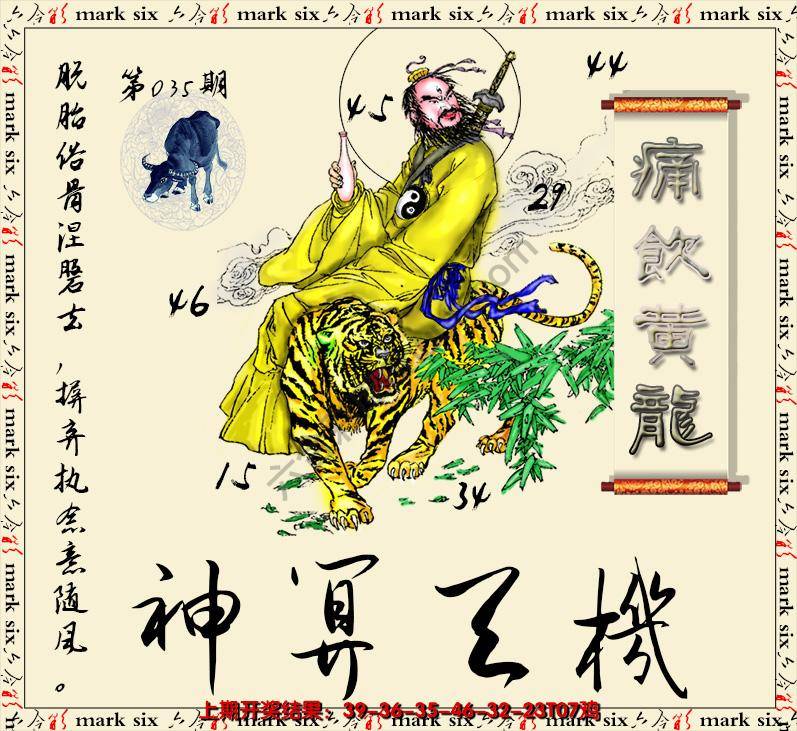 六合彩 mark six 六合彩 mark six 六合彩 mark six 六合彩 mark six 六合彩 mark six
第035期
脱胎俗骨涅磐去，摒弃执念意随风。
44
45
29
46
15
34
痛飲黄龍
神算天機
上期开奖结果：39-36-35-46-32-23T07鸡